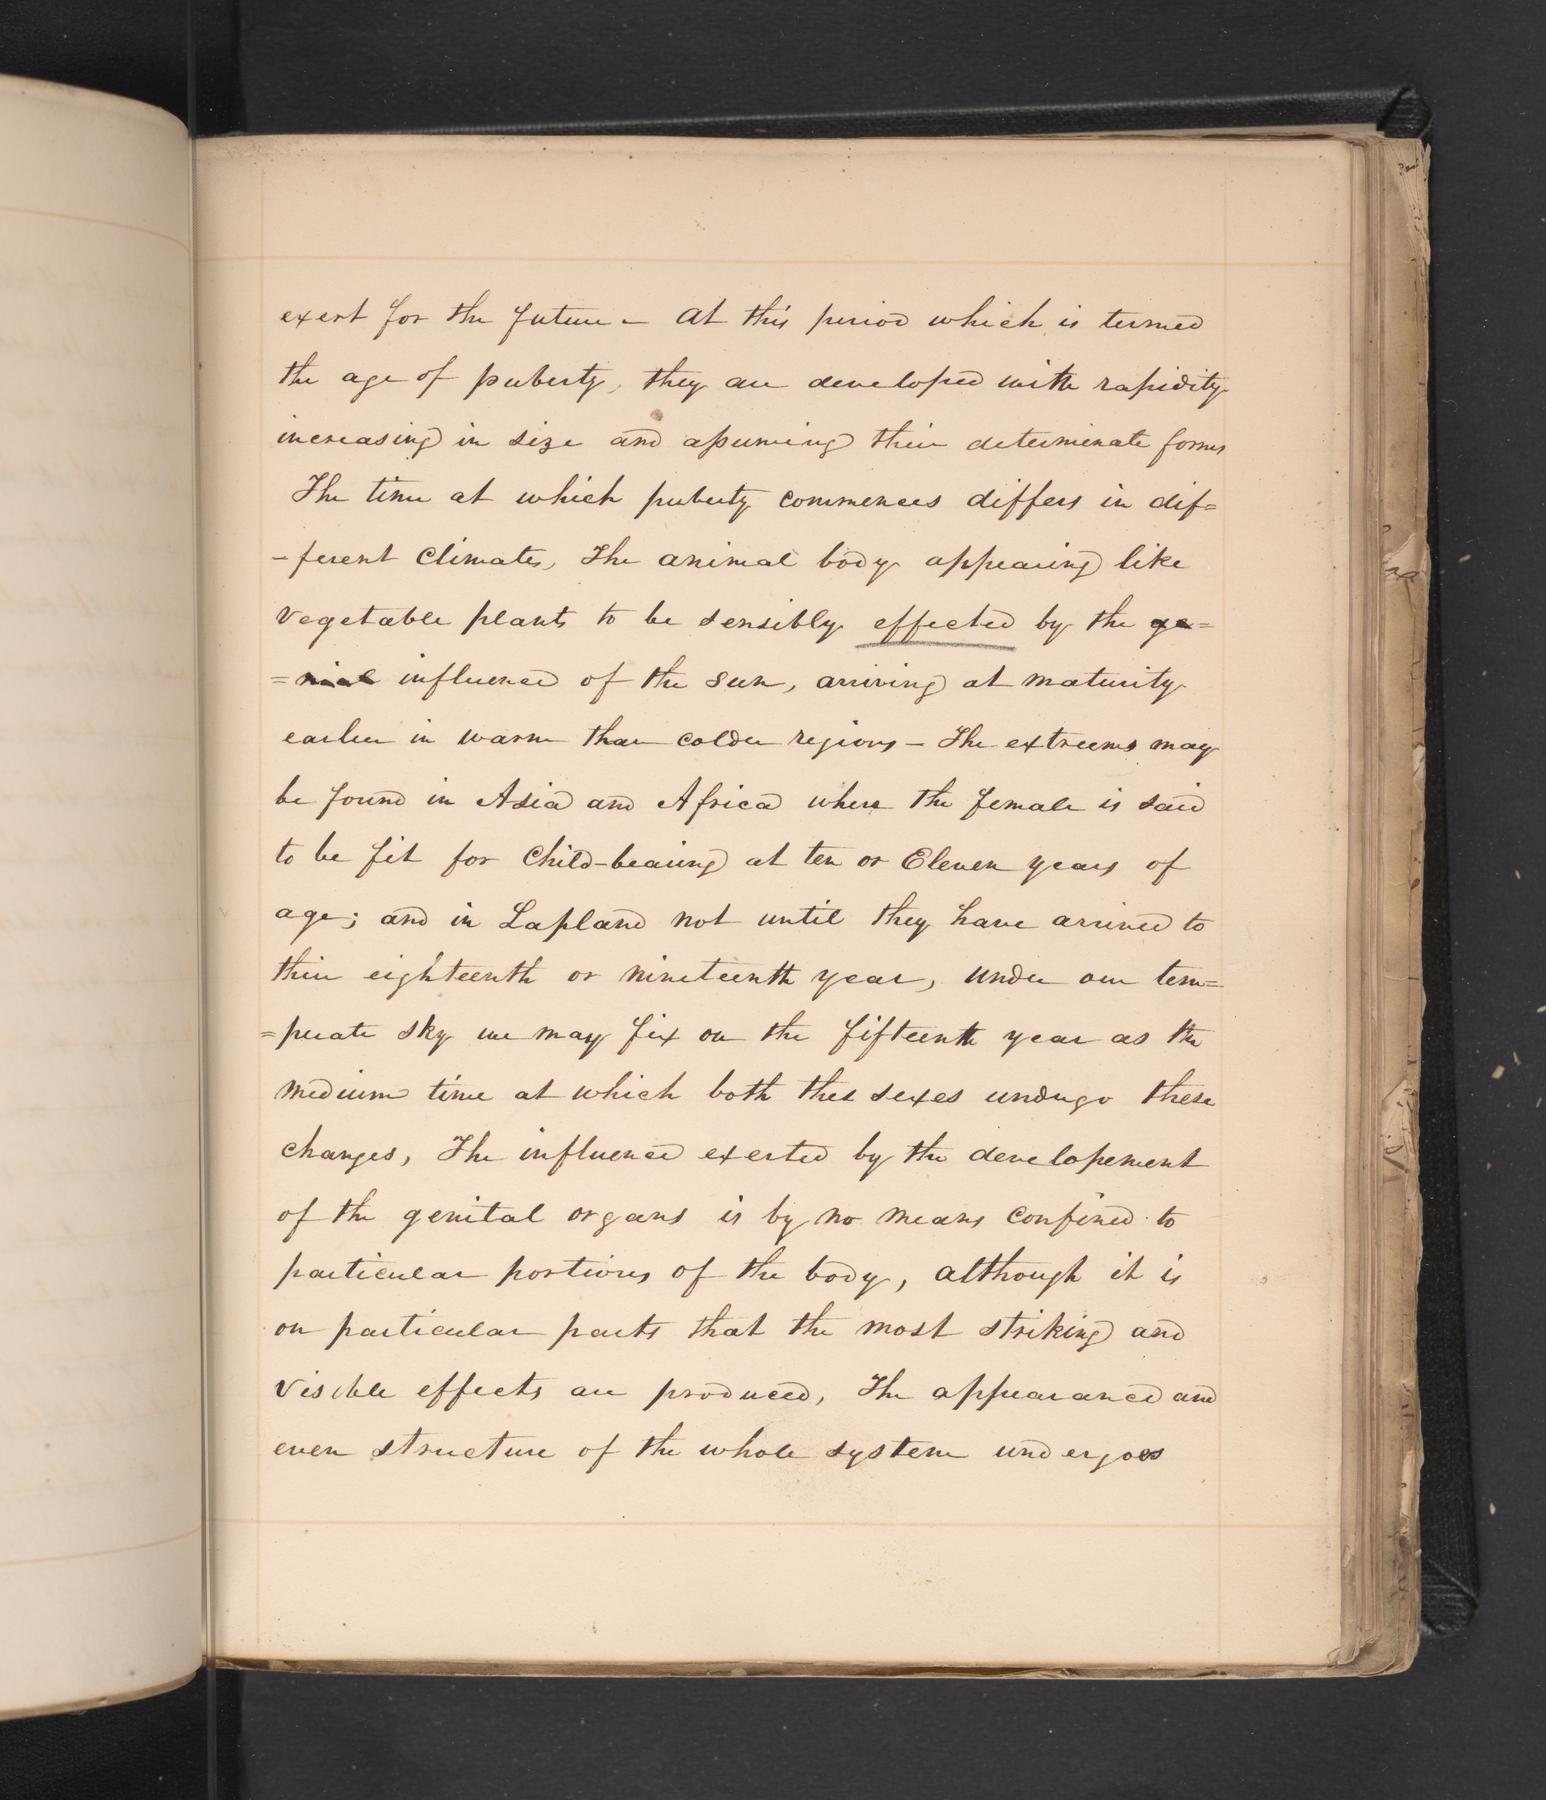 exert for the future – At this period which is termed
the age of puberty, they are developed with rapidity
increasing in size and assuming their determinate forms
The time at which puberty commences differs in dif=
-ferent Climates, The animal body appearing like
vegetable plants to be sensibly effected by the ge=
=nial influence of the sun, arriving at maturity
earlier in warm than colder regions – The extreems may
be found in Asia and Africa where the female is said
to be fit for Child-bearing at ten or Eleven years of
age; and in Lapland not until they have arrived to
their eighteenth or nineteenth year, under our tem=
=perate sky we may fix on the fifteenth year as the
medium time at which both the sexes undergo these
changes, The influence exerted by the developement
of the genital organs is by no means confined to
particular portions of the body, although it is
on particular parts that the most striking and
visible effects are produced, The appearance and
even structure of the whole system undergoes